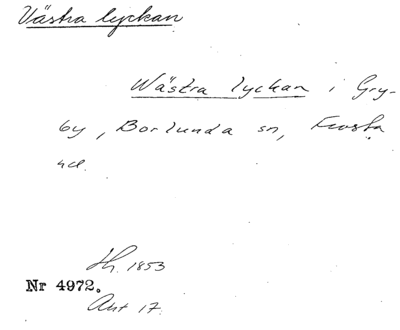 Västra lyckan
Wästra lyckan i Gry-
by, Borlunda sn, Frosta
hd.
Hs. 1853
Nr 4972.
Akt 17.